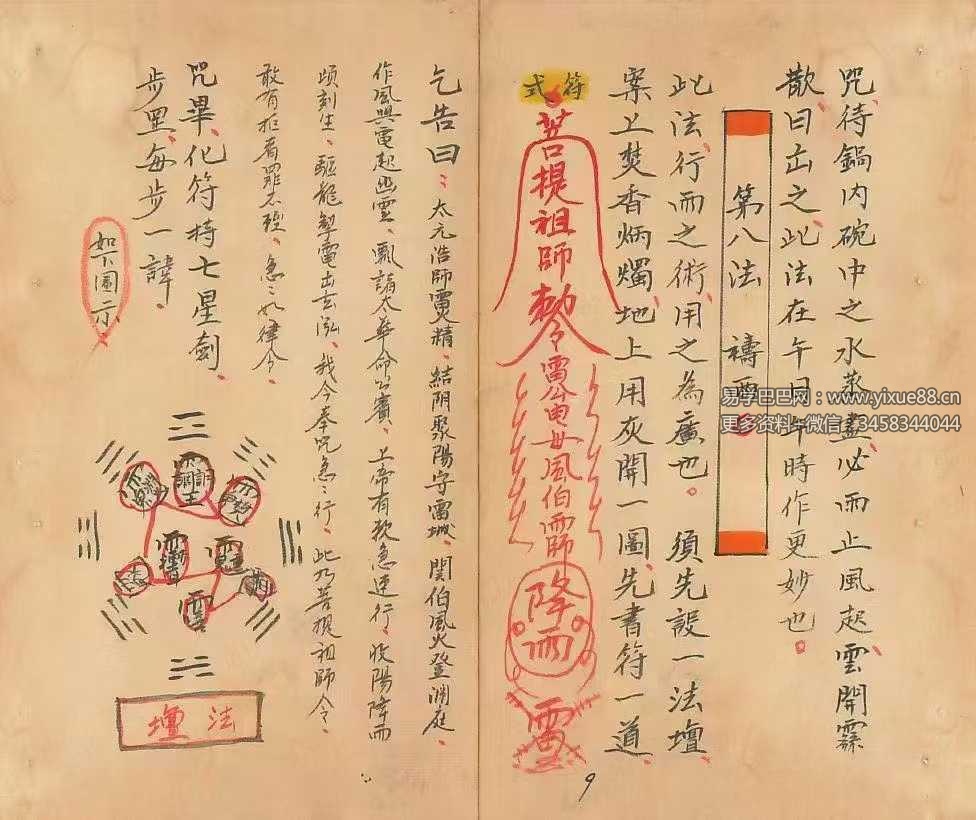 咒、待鍋内碗中之水蒸盡、必雨止風起、雲開霧
散、日出之、此法在午日午時作更妙也。
第八法 禱雨
此法、行雨之術、用之為廣也。須先設一法壇、
案上焚香炳燭、地上用灰開一圖、先書符一道、
符式
菩提祖師勅令雷公電母風伯雨師降雨
乞告曰:太元浩師雷火精、結阴聚陽守雷城、関伯風火登淵庭、
作風興電起幽靈、飄諸太華命公賓、上帝有敕急速行、收陽降雨
頃刻生、驅龍掣電出玄泓、我今奉咒急々行、此乃菩提祖師令、
敢有拒者罪不輕、急々如律令、
咒畢、化符持七星劍、
步罡、每步一諱、
如下圖示
法壇
9
易学巴巴网:www.yixue88.cn
更多资料+微信:13458344044